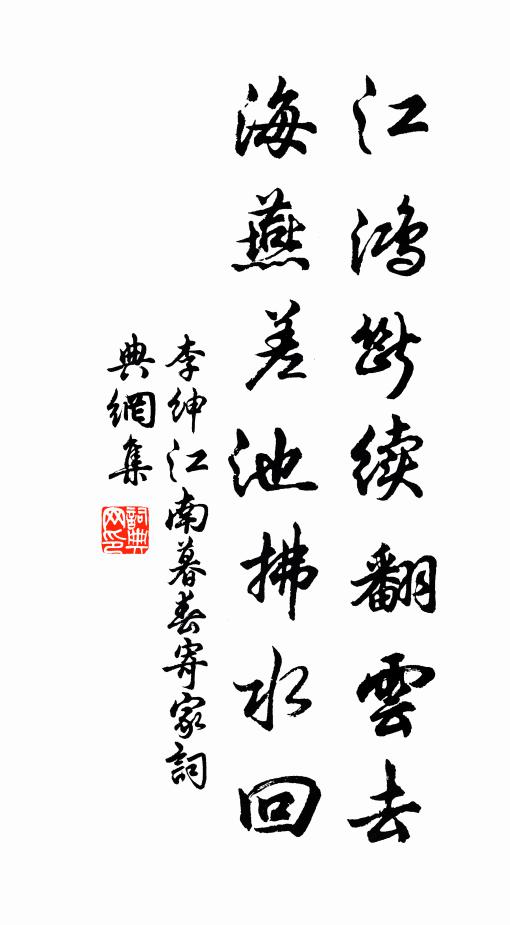 江鸿斷续翻雲去
海燕差池拂水回
李绅江南暮春寄家詞
典網集
詞典
网印